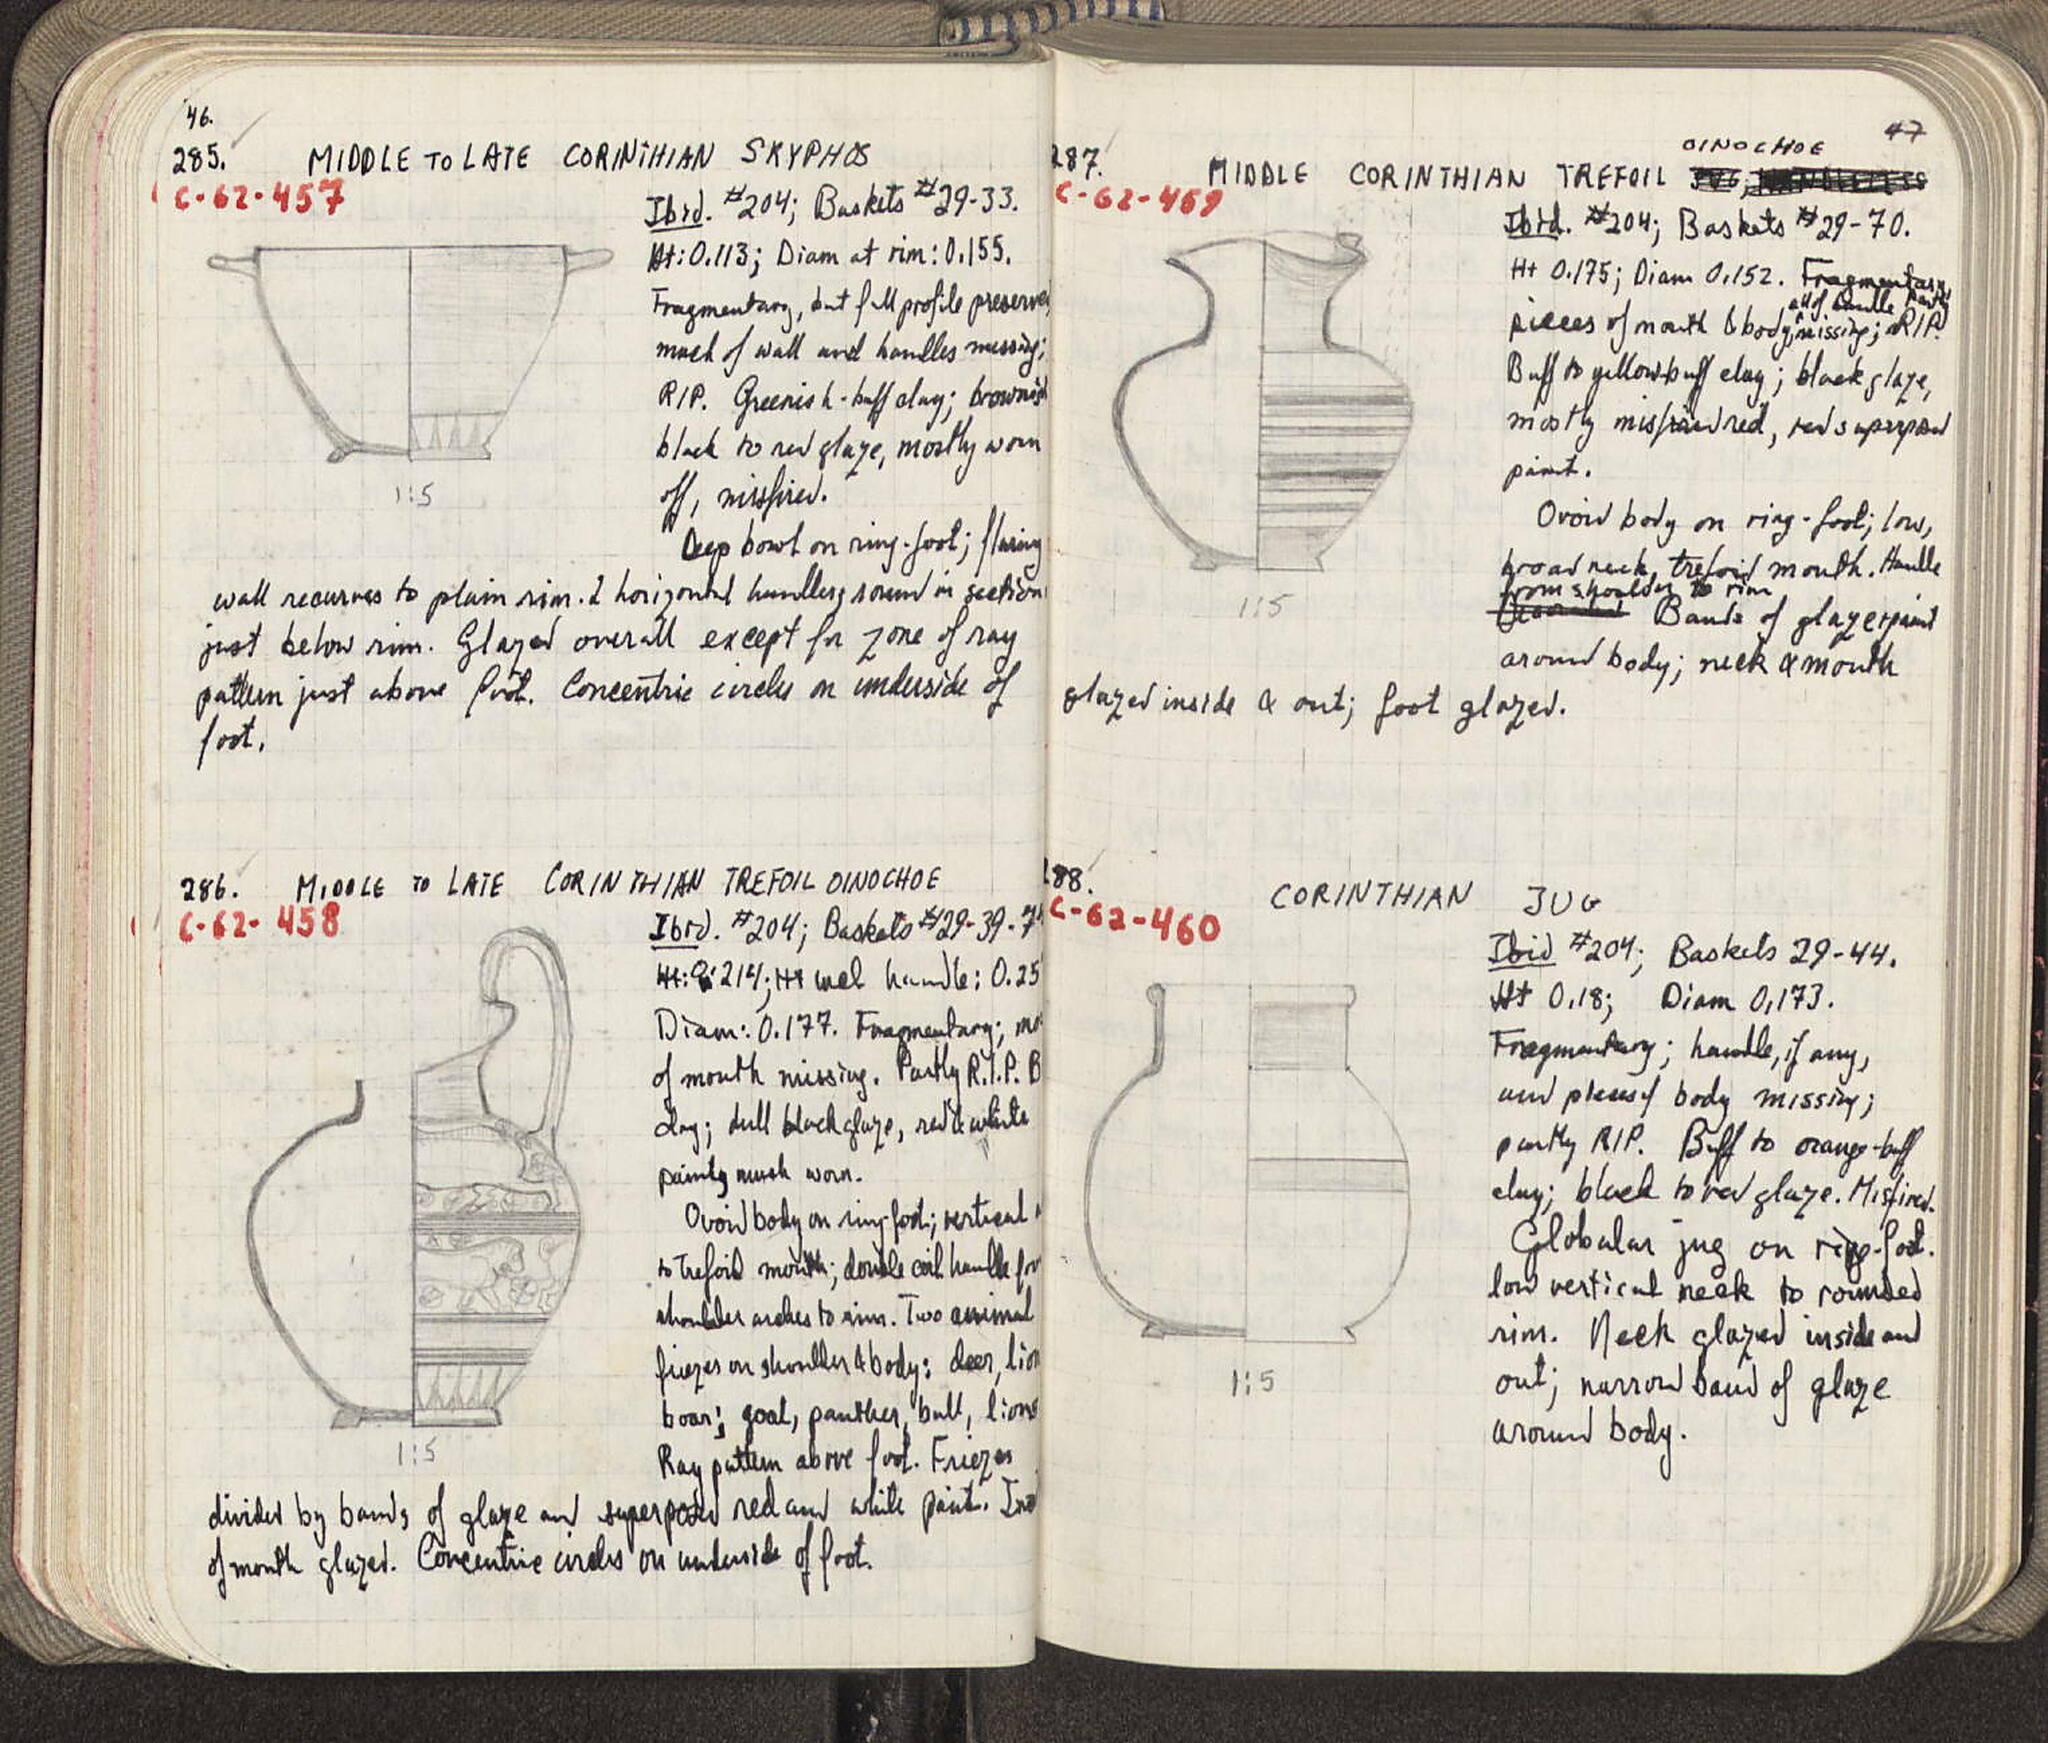 46.
285. MIDDLE TO LATE CORINTHIAN SKYPHOS
C-62-457
Ibid. #204; Baskets #29-33.
Ht: 0.113; Diam at rim: 0.155.
Fragmentary, but full profile preserved
much of wall and handles missing;
RIP. Greenish-buff clay; brownish
black to red glaze, mostly worn
off, misfired.
Deep bowl on ring-foot; flaring
wall recurves to plain rim. 2 horizontal handles, round in section
just below rim. Glazed overall except for zone of ray
pattern just above foot. Concentric circles on underside of
foot.
1:5
286. MIDDLE TO LATE CORINTHIAN TREFOIL OINOCHOE
C-62-458
Ibid. #204; Baskets #29-39-7
Ht: 0.214; Ht incl handle: 0.25
Diam: 0.177. Fragmentary; mo
of mouth missing. Partly R.I.P. B
clay; dull black glaze, red & white
paint, much worn.
Ovoid body on ring foot; vertical n
to trefoil mouth; double coil handle fro
shoulder arches to rim. Two animal
friezes on shoulder & body: deer, lion
boar; goat, panther, bull, lions
Ray pattern above foot. Friezes
divided by bands of glaze and superposed red and white paint. Ins
of mouth glazed. Concentric circles on underside of foot.
1:5
47
287. MIDDLE CORINTHIAN TREFOIL OINOCHOE
C-62-459
Ibid. #204; Baskets #29-70.
Ht 0.175; Diam 0.152. Fragmentary,
pieces of mouth & body, all of handle missing; partly RIP.
Buff to yellow-buff clay; black glaze,
mostly misfired red, red superposed
paint.
Ovoid body on ring-foot; low,
broad neck, trefoil mouth. Handle
from shoulder to rim
Bands of glaze & paint
around body; neck & mouth
glazed inside & out; foot glazed.
1:5
288. CORINTHIAN JUG
C-62-460
Ibid #204; Baskets 29-44.
Ht 0.18; Diam 0.173.
Fragmentary; handle, if any,
and pieces of body missing;
partly RIP. Buff to orange-buff
clay; black to red glaze. Misfired.
Globular jug on ring-foot.
low vertical neck to rounded
rim. Neck glazed inside and
out; narrow band of glaze
around body.
1:5